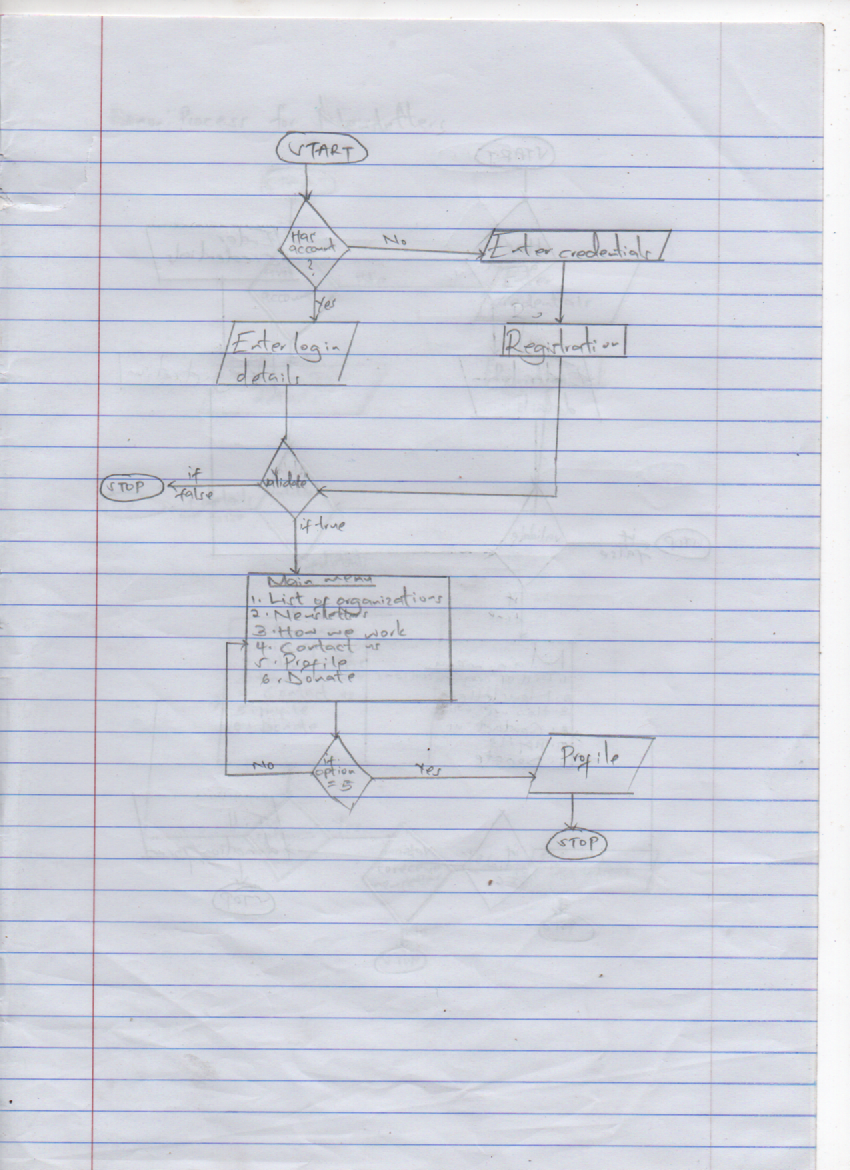 START
Has
account
?
No
Enter credentials
Yes
Enter login
details
Registration
validate
if
false
STOP
if true
Main menu
1. List of organizations
2. Newsletters
3. How we work
4. Contact us
5. Profile
6. Donate
if
option
= 5
No
Yes
Profile
STOP